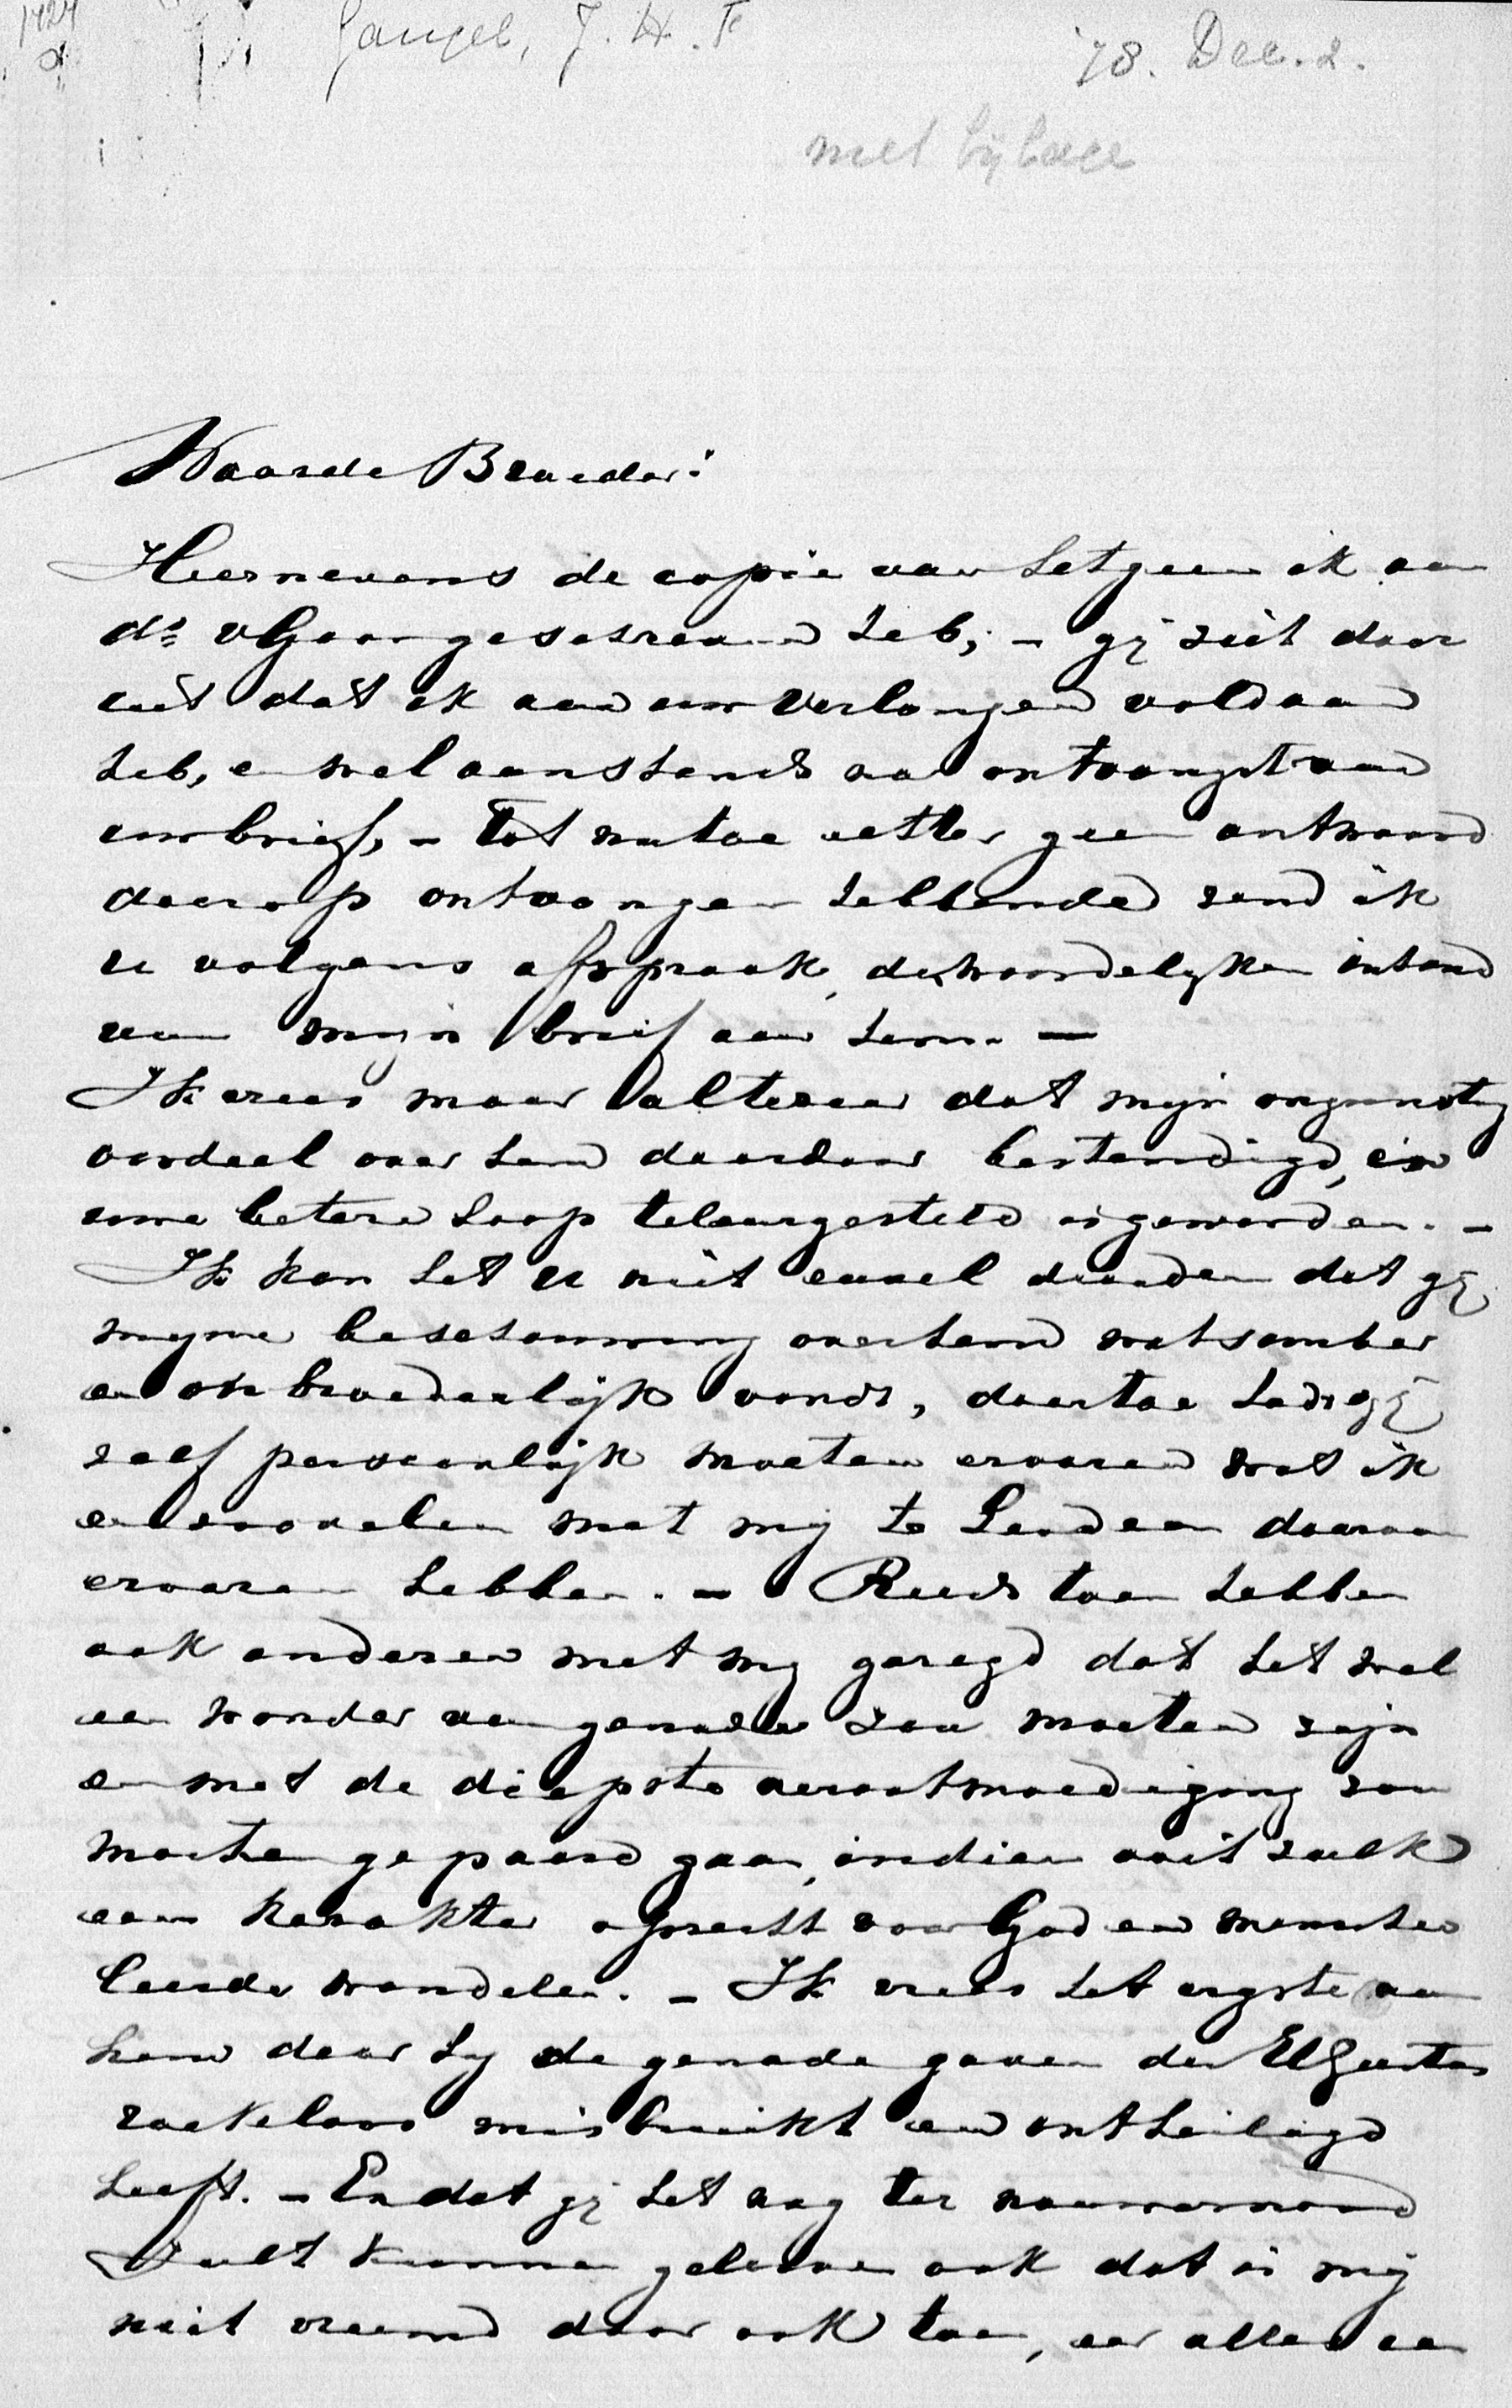 1424
Gangel, J. H. F
'78. Dec. 2.
met bijlage
Waarde Broeder!
Hiernevens de copie van hetgeen ik aan
ds vGoor geschreven heb; – gij ziet daar
uit dat ik aan uw verlangen voldaan
heb, en wel aanstonds na ontvangst van
uw brief, – Tot nu toe echter geen antwoord
daarop ontvangen hebbende zend ik
u volgens afspraak, de woordelyken inhoud
van myn brief aan hem. –
Ik vrees maar altezeer dat mijn ongunstig
oordeel over hem daardoor bestendigd, en
uwe betere hoop teleurgesteld is geworden. –
Ik kan het u niet euvel duiden dat gij
myne beschouwing over hem wat somber
en onbroederlijk vondt, daartoe hadt gij
zelf persoonlijk moeten ervaren wat ik
en zoovelen met mij te Leiden daarvan
ervaren hebben. – Reeds toen hebben
ook anderen met my gezegd dat het wel
een wonder van genade zou moeten zijn
en met de diepste verootmoediging zou
moeten gepaard gaan, indien ooit zulk
een karakter oprecht voor God en menschen
leerde wandelen. – Ik vrees het ergste van
hem daar hy de genade gaven des HGeestes
roekeloos misbruikt en ontheiligd
heeft. – En dat gij het nog ter nauwernood
zult kunnen gelooven ook dat is mij
niet vreemd daar ook toen, eer alles een